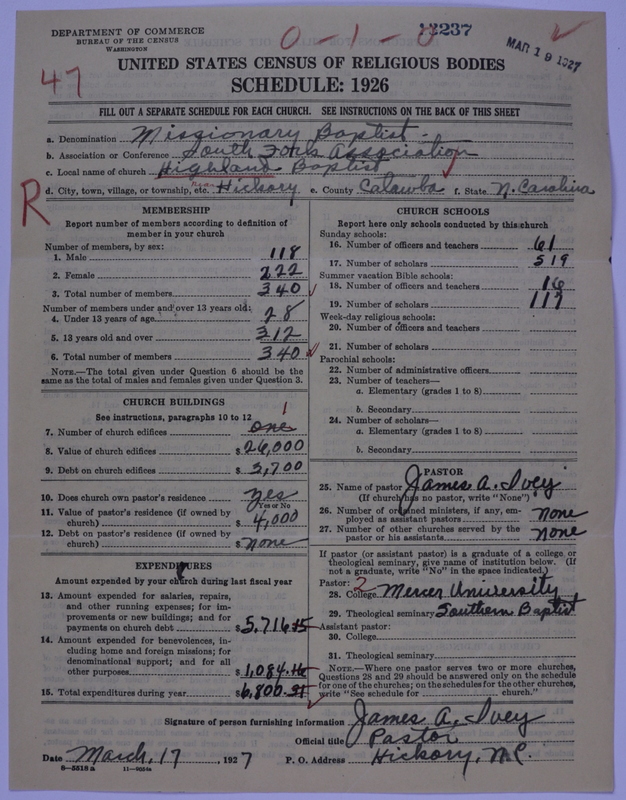 DEPARTMENT OF COMMERCE
BUREAU OF THE CENSUS
WASHINGTON
0-1-0
12237
MAR 19 1927
47
UNITED STATES CENSUS OF RELIGIOUS BODIES
SCHEDULE: 1926
FILL OUT A SEPARATE SCHEDULE FOR EACH CHURCH. SEE INSTRUCTIONS ON THE BACK OF THIS SHEET
a. Denomination Missionary Baptist
b. Association or Conference South Fork Association
c. Local name of church Highland Baptist
d. City, town, village, or township, etc. near Hickory e. County Catawba f. State N. Carolina
R
MEMBERSHIP
Report number of members according to definition of
member in your church
Number of members, by sex:
1. Male 118
2. Female 222
3. Total number of members 340
Number of members under and over 13 years old:
4. Under 13 years of age 28
5. 13 years old and over 312
6. Total number of members 340
NOTE.—The total given under Question 6 should be
same as the total of males and females given under Question 3.
CHURCH BUILDINGS
See instructions, paragraphs 10 to 12
1
7. Number of church edifices one
8. Value of church edifices $ 26,000
9. Debt on church edifices $ 3,700
10. Does church own pastor's residence yes
Yes or No
11. Value of pastor's residence (if owned by
church) $ 4,000
12. Debt on pastor's residence (if owned by
church) $ none
EXPENDITURES
Amount expended by your church during last fiscal year
13. Amount expended for salaries, repairs,
and other running expenses; for im-
provements on new buildings; and for
payments on church debt $5,716.15
14. Amount expended for benevolences, in-
cluding home and foreign missions; for
denominational support; and for all
other purposes $1,084.16
15. Total expenditures during year $6,800.31
CHURCH SCHOOLS
Report here only schools conducted by this church
Sunday schools:
16. Number of officers and teachers 61
17. Number of scholars 519
Summer vacation Bible schools:
18. Number of officers and teachers 16
19. Number of scholars 117
Week-day religious schools:
20. Number of officers and teachers
21. Number of scholars
Parochial schools:
22. Number of administrative officers
23. Number of teachers—
a. Elementary (grades 1 to 8)
b. Secondary
24. Number of scholars—
a. Elementary (grades 1 to 8)
b. Secondary
PASTOR
25. Name of pastor James A. Ivey
(If church has no pastor, write "None")
26. Number of ordained ministers, if any, em-
ployed as assistant pastors none
27. Number of other churches served by the
pastor or his assistants none
If pastor (or assistant pastor) is a graduate of a college or
theological seminary, give name of institution below. (If
not a graduate, write "No" in the space indicated.)
Pastor: 2
28. College Mercer University
29. Theological seminary Southern Baptist
Assistant pastor:
30. College
31. Theological seminary
NOTE.—Where one pastor serves two or more churches,
Questions 28 and 29 should be answered only on the schedule
for one of the churches; on the schedules for the other churches,
write "See schedule for church."
Signature of person furnishing information James A. Ivey
Official title Pastor
Date March, 17, 1927 P. O. Address Hickory, N.C.
8—5518 a 11—9054a